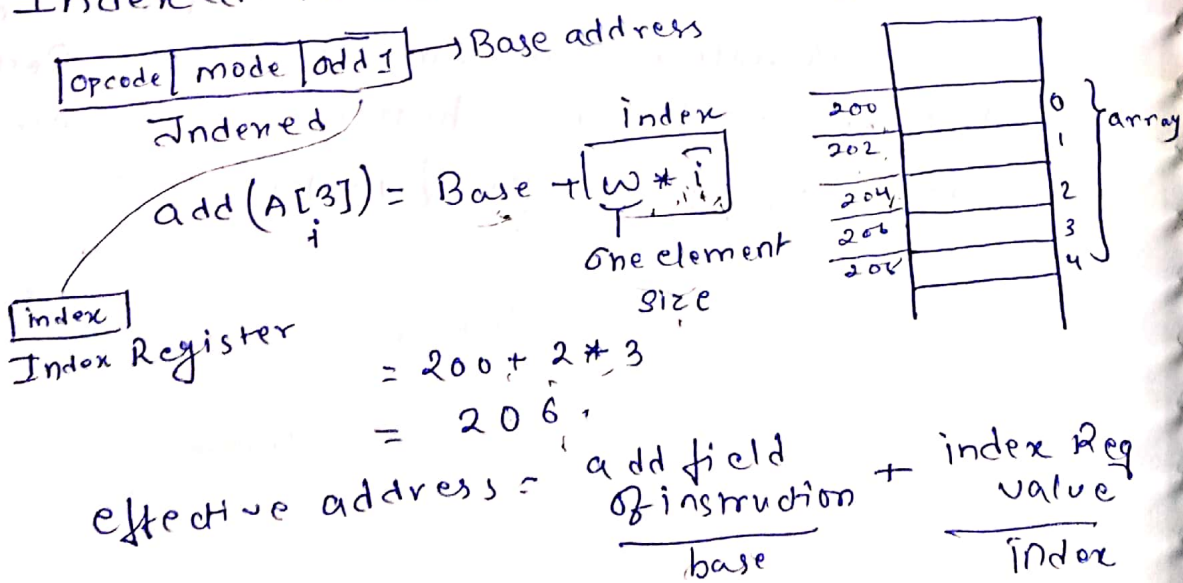 opcode mode add 1 → Base address
Indexed
index
add (A[3]) = Base + w * i
i
One element
size
index
Index Register
= 200 + 2 * 3
= 206.
effective address = add field of instruction + index Reg value
base index
200 0
202 1
204 2
206 3
208 4
array